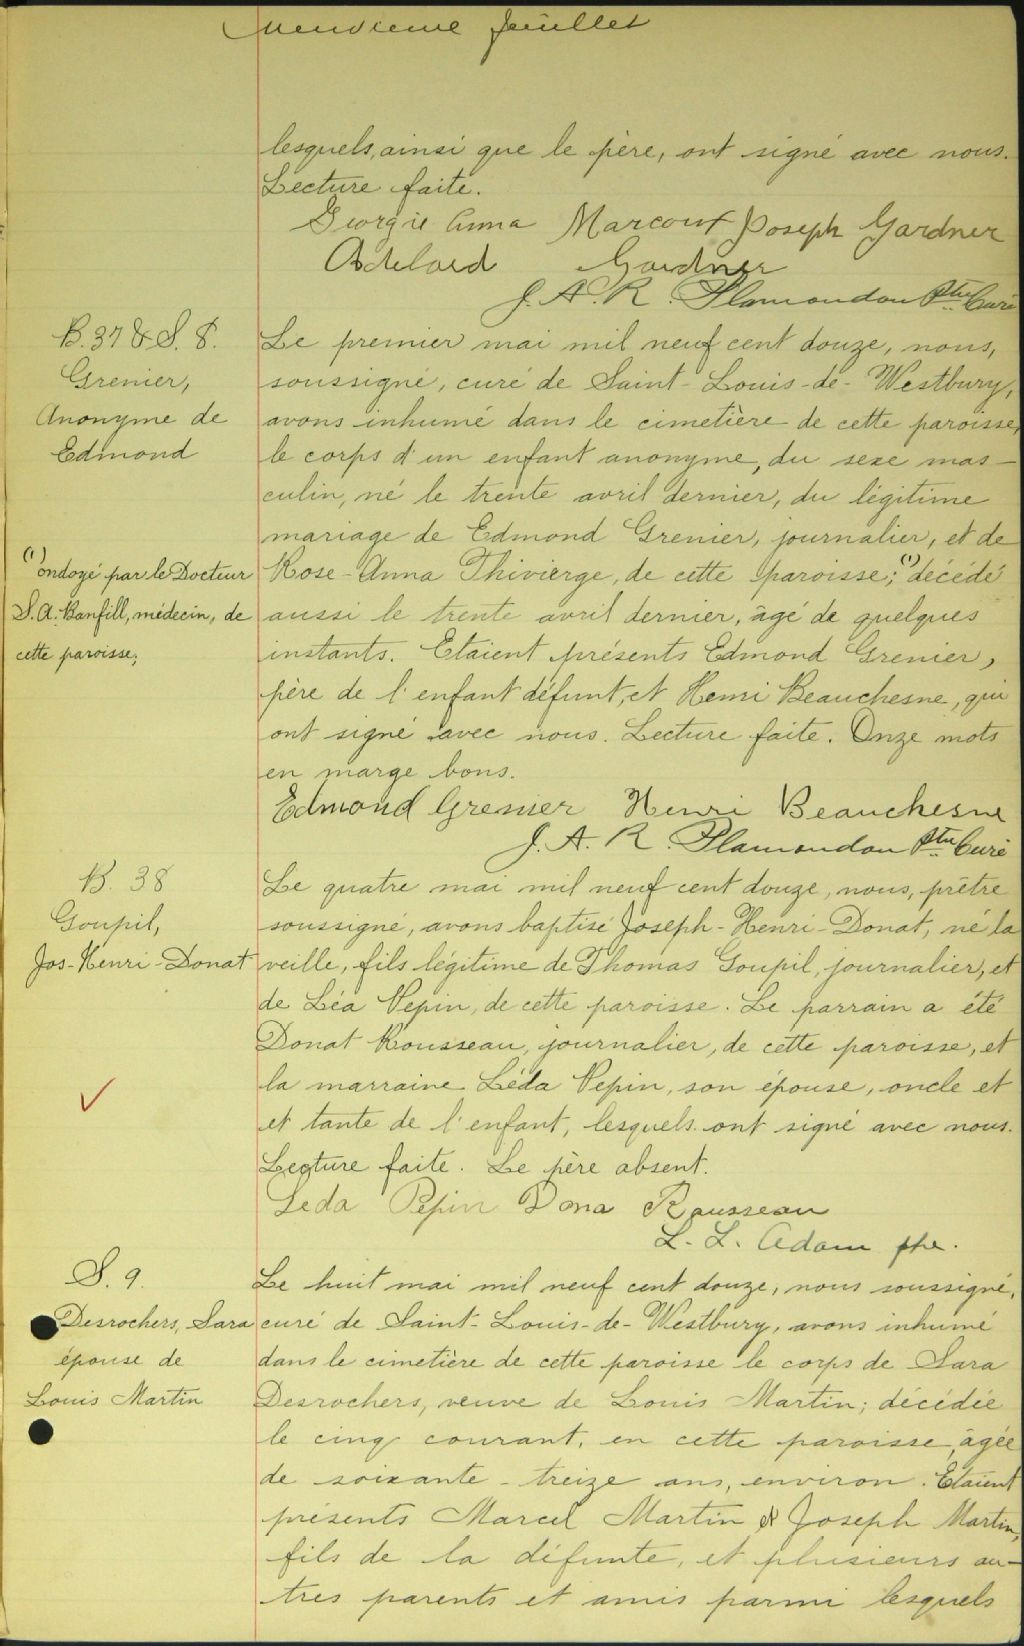 neuvième feuillet
lesquels, ainsi que le père, ont signé avec nous.
Lecture faite.
Georgie Anna Marcoux Joseph Gardner
Adelard Gardner
J. A. R. Plamondon Ptre Curé
B. 37 & S. 8.
Grenier,
Anonyme de
Edmond
Le premier mai mil neuf cent douze, nous,
soussigné, curé de Saint-Louis-de-Westbury,
avons inhumé dans le cimetière de cette paroisse,
le corps d'un enfant anonyme, du sexe mas-
culin, né le trente avril dernier, du légitime
mariage de Edmond Grenier, journalier, et de
Rose-Anna Thivierge, de cette paroisse; (1) décédé
aussi le trente avril dernier, âgé de quelques
instants. Etaient présents Edmond Grenier,
père de l'enfant défunt, et Henri Beauchesne, qui
ont signé avec nous. Lecture faite. Onze mots
en marge bons.
(1) ondoyé par le Docteur
S. A. Banfill, médecin, de
cette paroisse;
Edmond Grenier Henri Beauchesne
J. A. R. Plamondon Ptre Curé
B. 38
Goupil,
Jos-Henri-Donat
Le quatre mai mil neuf cent douze, nous, prêtre
soussigné, avons baptisé Joseph-Henri-Donat, né la
veille, fils légitime de Thomas Goupil, journalier, et
de Léa Pepin, de cette paroisse. Le parrain a été
Donat Rousseau, journalier, de cette paroisse, et
la marraine Léda Pepin, son épouse, oncle et
et tante de l'enfant, lesquels ont signé avec nous.
Lecture faite. Le père absent.
Leda Pepin Dona Rousseau
L. L. Adam ptre.
S. 9.
Desrochers, Sara
épouse de
Louis Martin
Le huit mai mil neuf cent douze, nous soussigné,
curé de Saint-Louis-de-Westbury, avons inhumé
dans le cimetière de cette paroisse le corps de Sara
Desrochers, veuve de Louis Martin; décédée
le cinq courant, en cette paroisse, âgée
de soixante-treize ans, environ. Etaient
présents Marcel Martin & Joseph Martin,
fils de la défunte, et plusieurs au-
tres parents et amis parmi lesquels